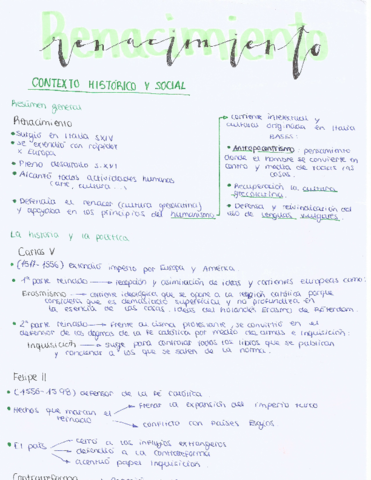 Renacimiento
renacimiento
CONTEXTO HISTÓRICO Y SOCIAL
Resumen general
Renacimiento
• Surgió en Italia S.XIV
• se extendió con rapidez
x Europa
• Pleno desarrollo s.XVI
• Alcanzó todas actividades humanas
(arte, cultura...)
• Defendía el renacer (cultura grecolatina)
y apoyada en los principios del humanismo
→ corriente intelectual y
cultural originada en Italia
BASES:
• Antropocentrismo: pensamiento
donde el hombre se convierte en
centro y medida de todas las
cosas.
• Recuperación la cultura
grecolatina
• Defensa y reivindicación del
uso de lenguas vulgares
La historia y la política
Carlos V
• (1517-1556) extendió imperio por Europa y América
• 1ª parte reinado → recepción y asimilación de ideas y corrientes europeas como:
Erasmismo → corriente ideológica que se opone a la religión católica porque
considera que es demasiado superficial y no profundiza en
la esencia de las cosas. Ideas del holandés Erasmo de Róterdam.
• 2ª parte reinado → Frente al cisma protestante, se convirtió en el
defensor de los dogmas de la fe católica por medio de armas e inquisición.
Inquisición → surge para controlar todos los libros que se publican
y condenar a los que se salen de la norma.
Felipe II
• (1556-1598) defensor de la fe católica
• Hechos que marcan el
reinado
→ frenar la expansión del imperio turco
→ conflicto con Países Bajos
• El país
→ cerró a los influjos extranjeros
→ defendió a la contrarreforma
→ acentuó papel inquisición
Contrarreforma